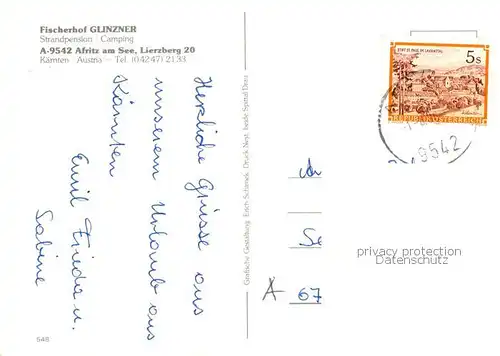 Fischerhof GLINZNER
Strandpension · Camping
A-9542 Afritz am See, Lierzberg 20
Kärnten · Austria — Tel. (0 42 47) 21 33
Herzliche Grüsse aus
unserem Urlaub aus
Kärnten
Emil Frieda u.
Sabine
548
Grafische Gestaltung: Erich Schimek, Druck: Nept, beide Spittal/Drau
5 s
STIFT ST. PAUL IM LAVANTTAL
REPUBLIK ÖSTERREICH
9542
An
Se
A 67
privacy protection
Datenschutz